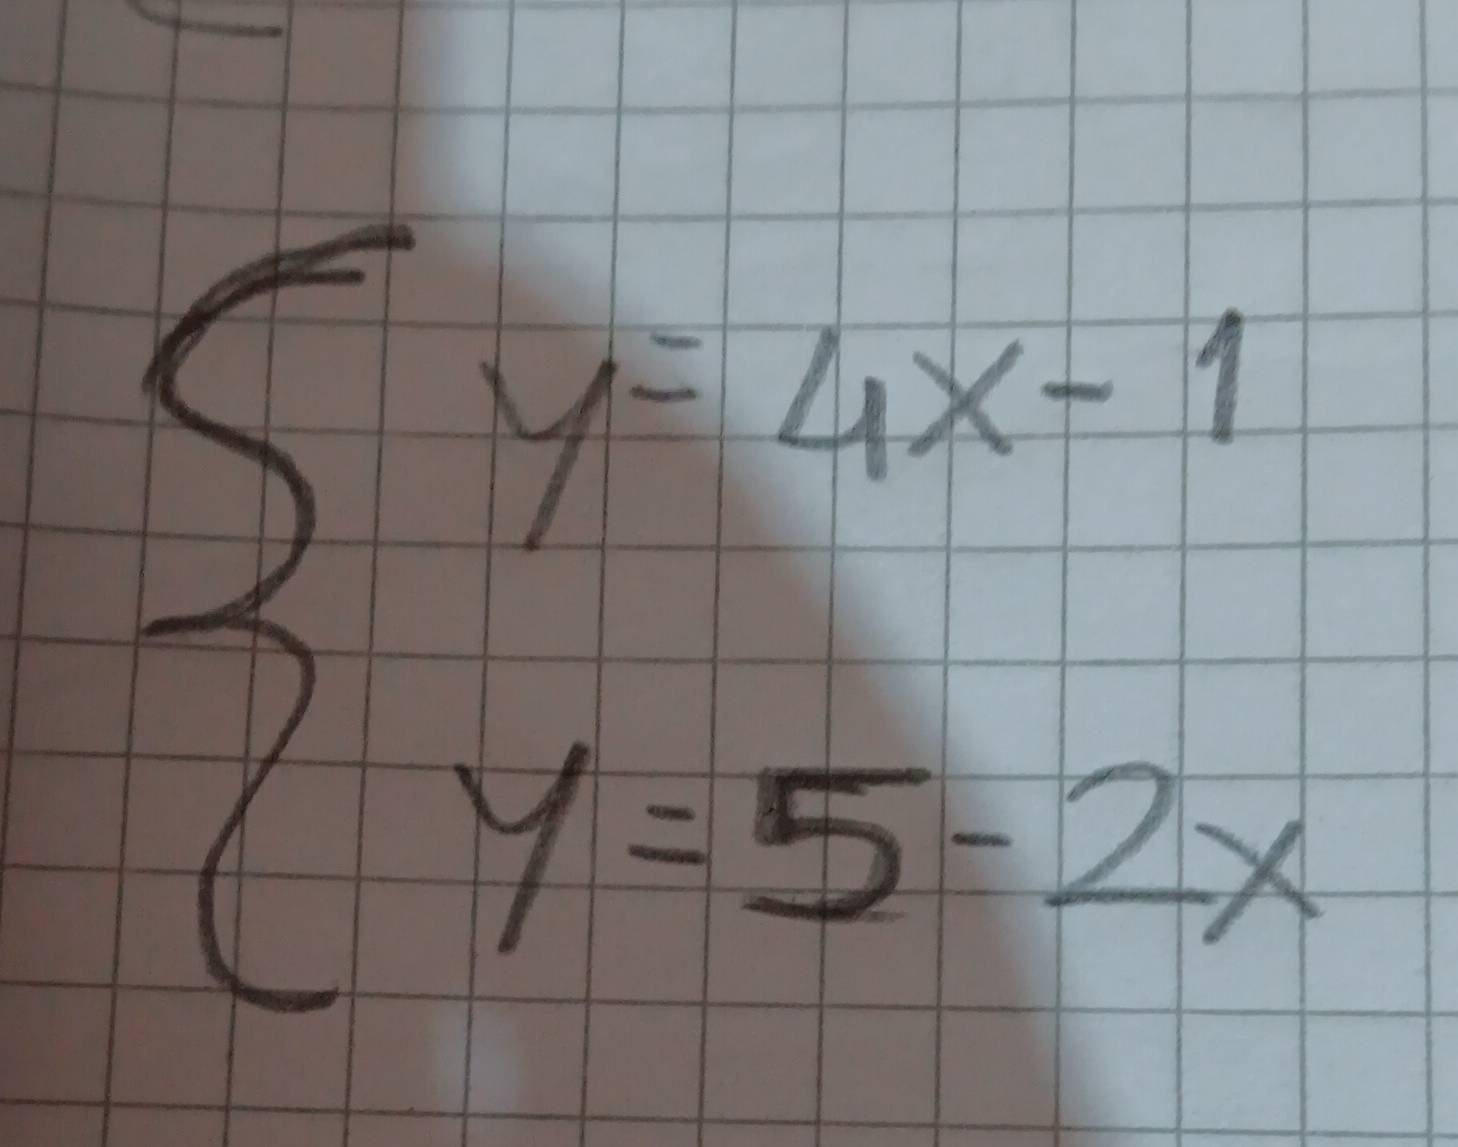 y = 4x - 1
y = 5 - 2x